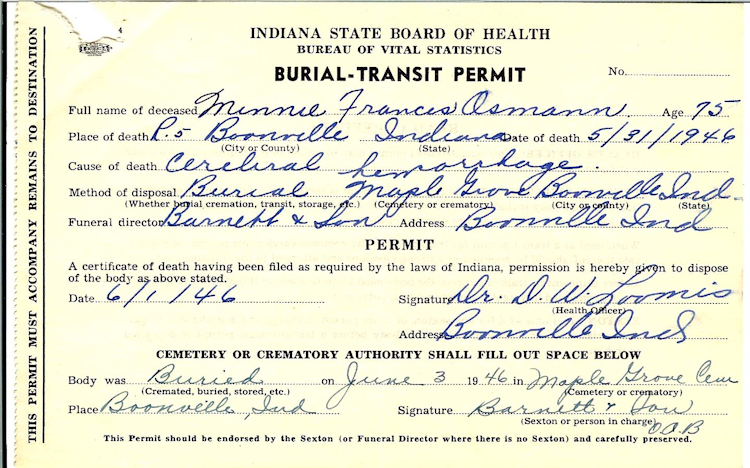 INDIANA STATE BOARD OF HEALTH
BUREAU OF VITAL STATISTICS
BURIAL-TRANSIT PERMIT
No.
Full name of deceased Minnie Francis Osmann Age 75
Place of death R.5 Boonville Indiana Date of death 5/31/1946
(City or County) (State)
Cause of death Cerebral hemorrhage.
Method of disposal Burial Maple Grove Boonville Ind
(Whether burial cremation, transit, storage, etc.) (Cemetery or crematory) (City or county) (State)
Funeral director Barnett & Son Address Boonville Ind
PERMIT
A certificate of death having been filed as required by the laws of Indiana, permission is hereby given to dispose
of the body as above stated.
Date 6/1/46 Signature Dr. D. W. Loomis
(Health Officer)
Address Boonville Ind
CEMETERY OR CREMATORY AUTHORITY SHALL FILL OUT SPACE BELOW
Body was Buried on June 3 1946 in Maple Grove Cem
(Cremated, buried, stored, etc.) (Cemetery or crematory)
Place Boonville, Ind Signature Barnett & Son
(Sexton or person in charge) O.O.B
This Permit should be endorsed by the Sexton (or Funeral Director where there is no Sexton) and carefully preserved.
THIS PERMIT MUST ACCOMPANY REMAINS TO DESTINATION